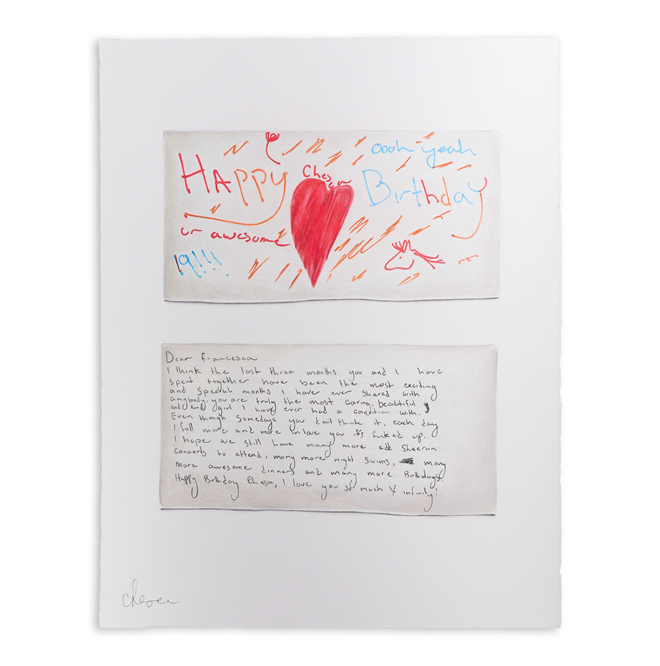 Happy Chesca Birthday
oooh yeah
ur awesome
19!!!
Dear Francesca
I think the last three months you and I have
spent together have been the most exciting
and special months I have ever shared with
anybody. you are truly the most caring, beautiful
girl I have ever had a condition with.
Even though somedays you don't think it, each day
I fall more and more in love you it's fucked up.
I hope we still have many more edd Sheeran
concerts to attend, many more night swims, many
more awesome dinners and many more Birthdays
Happy Birthday Chesca, I love you so much X infinity!